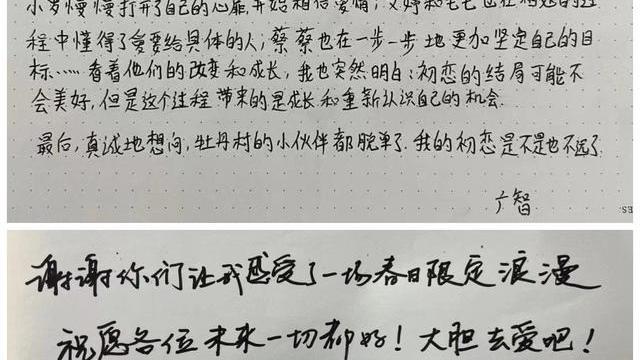 慢慢打开了自己的心扉,开始相信爱情;
程中懂得了爱要给具体的人;蔡蔡也在一步一步地更加坚定自己的目
标……看着他们的改变和成长,我也突然明白:初恋的结局可能不
会美好,但是这个过程带来的是成长和重新认识自己的机会.
最后,真诚地想问,牡丹村的小伙伴都脱单了.我的初恋是不是也不远了
广智
谢谢你们让我感受了一场春日限定浪漫
祝愿各位未来一切都好!大胆去爱吧!